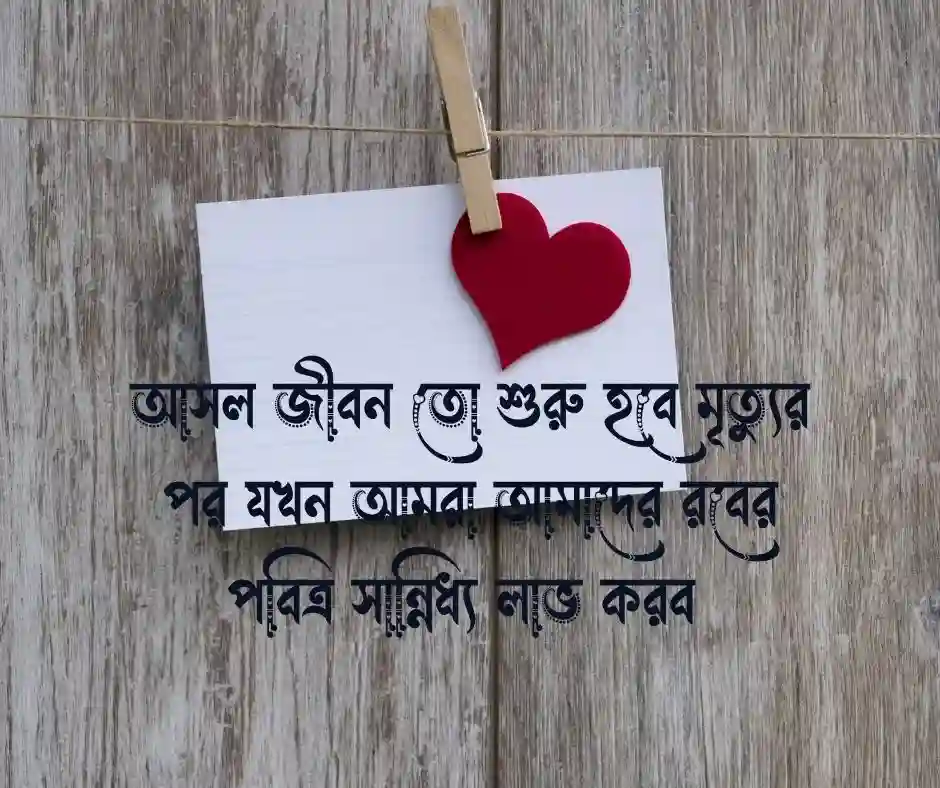 আসল জীবন তো শুরু হবে মৃত্যুর
পর যখন আমরা আমাদের রবের
পবিত্র সান্নিধ্যি লাভ করব